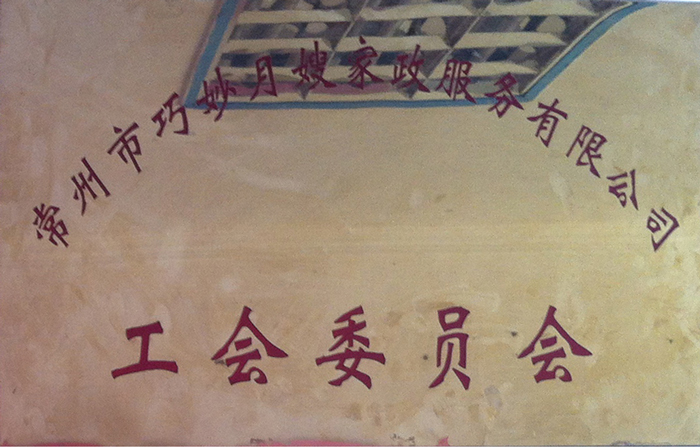 常州市巧妙月嫂家政服务有限公司
工会委员会